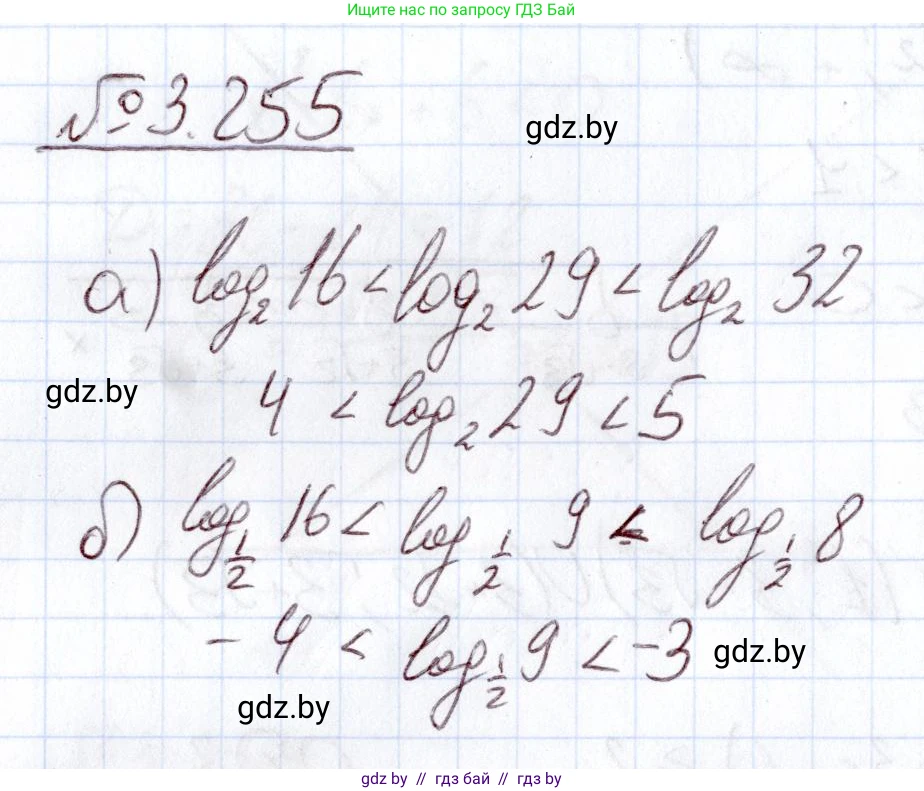 Ищите нас по запросу ГДЗ Бай
№3.255
gdz.by
а) log₂ 16 < log₂ 29 < log₂ 32
gdz.by
4 < log₂ 29 < 5
б) log_{1/2} 16 < log_{1/2} 9 < log_{1/2} 8
-4 < log_{1/2} 9 < -3
gdz.by
gdz.by
gdz by // гдз бай // gdz by